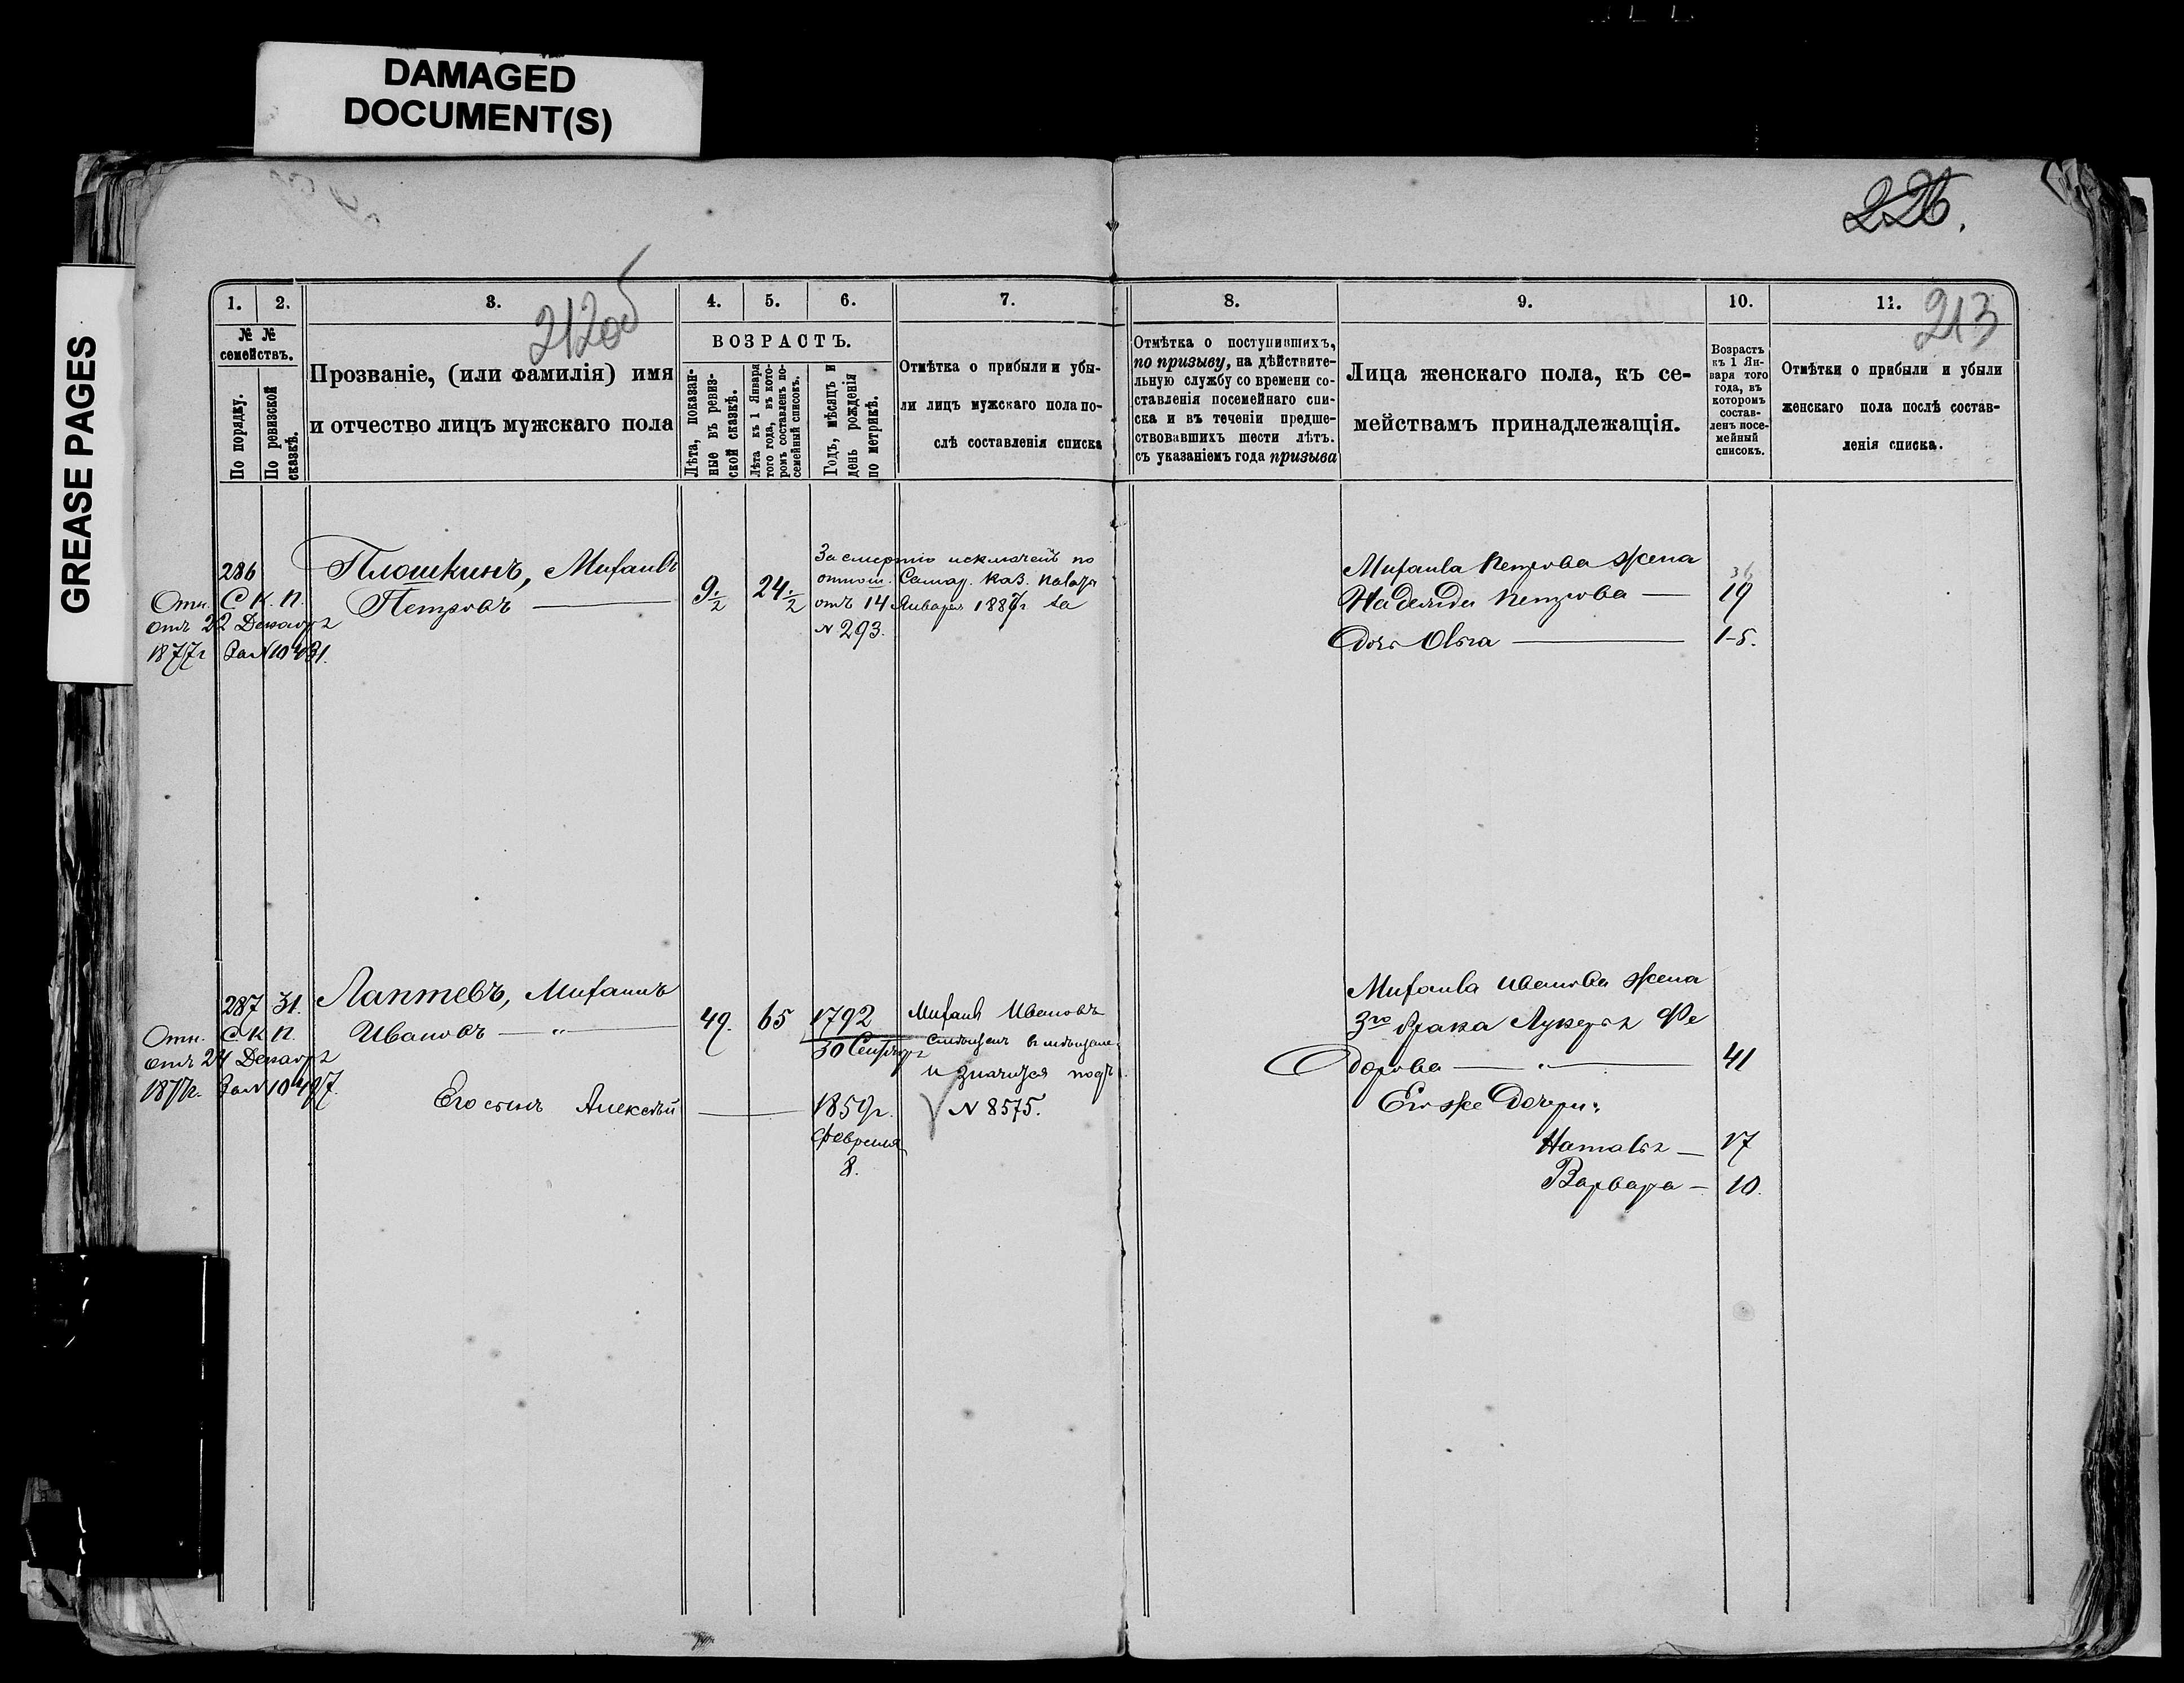 DAMAGED
DOCUMENT(S)
GREASE PAGES
226.
212об
213
1.
2.
3.
4.
5.
6.
7.
8.
9.
10.
11.
№ №
семействъ.
По порядку.
По ревизской
сказкѣ.
Прозваніе, (или фамилія) имя
и отчество лицъ мужскаго пола
ВОЗРАСТЪ.
Лѣта, показан-
ные въ ревиз-
ской сказкѣ.
Лѣта къ 1 Января
того года, въ кото-
ромъ составленъ по-
семейный списокъ.
Годъ, мѣсяцъ и
день рожденія
по метрикѣ.
Отмѣтка о прибыли и убы-
ли лицъ мужскаго пола по-
слѣ составленія списка
Отмѣтка о поступившихъ,
по призыву, на дѣйствите-
льную службу со времени со-
ставленія посемейнаго спи-
ска и въ теченіи предше-
ствовавшихъ шести лѣтъ.
съ указаніемъ года призыва
Лица женскаго пола, къ се-
мействамъ принадлежащія.
Возрастъ
къ 1 Ян-
варя того
года, въ
которомъ
состав-
ленъ посе-
мейный
списокъ.
Отмѣтки о прибыли и убыли
женскаго пола послѣ состав-
ленія списка.
286
Отн. С. К. П.
отъ 22 Декабря
1877г За № 10431.
Плошкинъ, Михаилъ
Петровъ
9 1/2
24 1/2
За смертію исключенъ по
отнош. Самар. каз. палаты
отъ 14 Января 1887г за
№ 293.
Михаила Петрова жена
Надежда Петрова —
19
Дочь Ольга
1-5.
287
31.
Отн. С. К. П.
отъ 24 Декабря
1877г. За № 10497.
Лаптевъ, Михаилъ
Ивановъ — „ —
49.
65
1792
30 Сентября
Михаилъ Ивановъ
и значится подъ
№ 8575.
Его сынъ Алексѣй
1859г.
Февраля
8.
Михаила Иванова жена
3го брака Лукерья Фе
дорова — „ —
41
Его же дочери:
Наталья —
17
Варвара —
10.